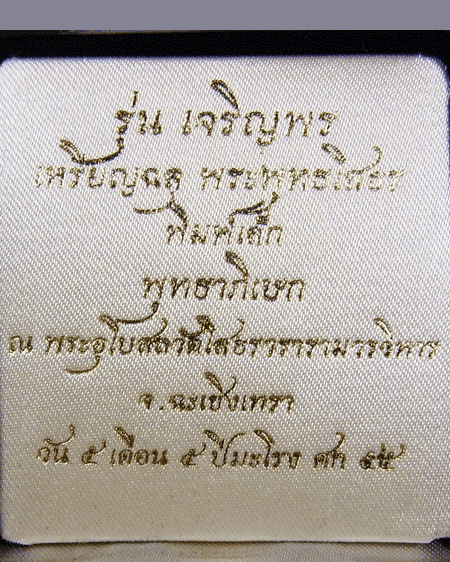 รุ่น เจริญพร
เหรียญฉลุ พระพุทธโสธร
พิมพ์เล็ก
พุทธาภิเษก
ณ พระอุโบสถวัดโสธรวรารามวรวิหาร
จ.ฉะเชิงเทรา
วัน ๕ เดือน ๕ ปีมะโรง ศก ๕๕